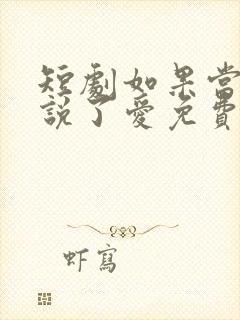 短劇如果當
說了愛免費
虾寫